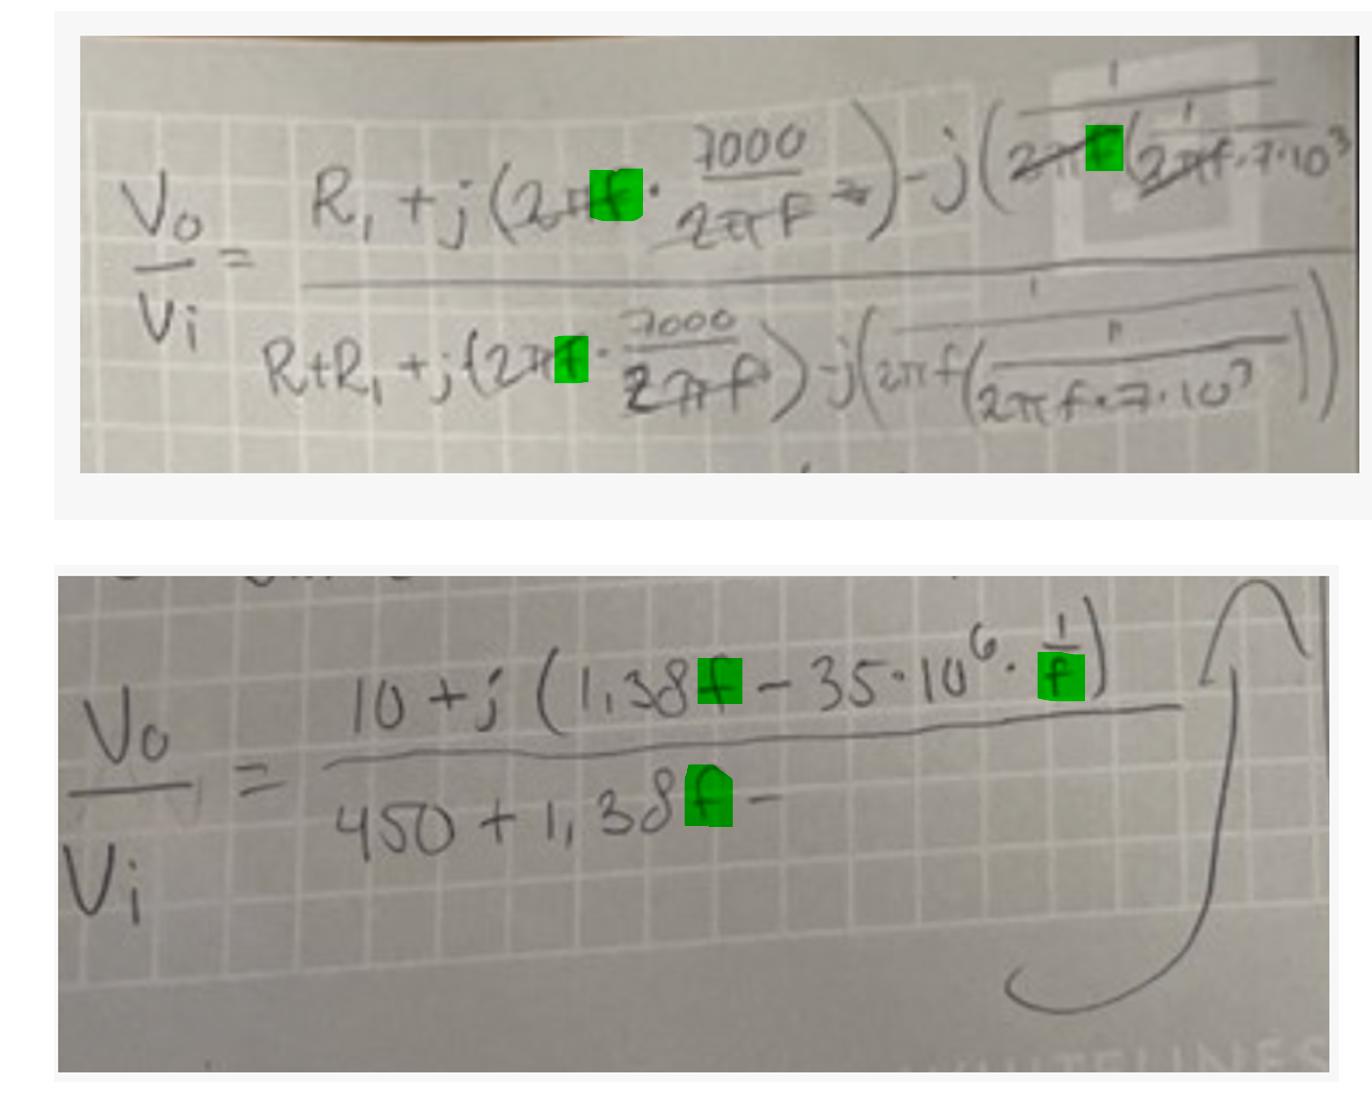 Vo/Vi = R₁ + j(2πf · 7000/2πf) - j(1/2πf(1/2πf·7·10³
R+R₁ + j(2πf · 7000/2πf) - j(1/(2πf(1/2πf·7·10³)))
Vo/Vi = 10 + j(1,38f - 35·10⁶ · 1/f)
450 + 1,38f -